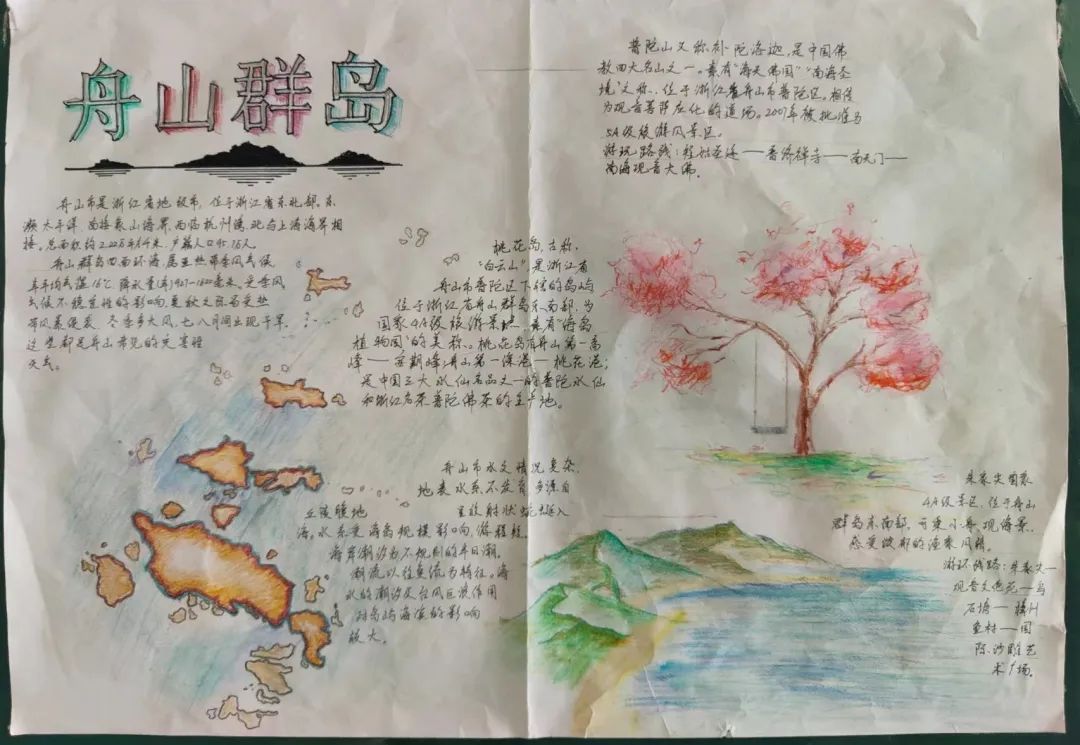 舟山群岛
舟山市是浙江省地级市，位于浙江省东北部，东
濒太平洋，南接象山海界，西临杭州湾，北与上海海界相
接。总面积约2.22万平方千米，户籍人口95.75万人。
舟山群岛四面环海，属亚热带季风气候，
年平均气温16℃，降水量(年)927—1620毫米，受季风
气候不稳定性的影响，夏秋之际易受热
带风暴侵袭，冬季多大风，七八月间出现干旱。
这些都是舟山常见的灾害性
天气。
普陀山又称补陀洛迦，是中国佛
教四大名山之一。素有“海天佛国”“南海圣
境”之称，位于浙江省舟山市普陀区。相传
为观音菩萨应化的道场。2007年被批准为
5A级旅游风景区。
游玩路线：短姑圣迹——普济禅寺——南天门——
南海观音大佛。
桃花岛，古称
“白云山”，是浙江省
舟山市普陀区下辖的岛屿
位于浙江省舟山群岛东南部，为
国家4A级旅游景地，素有“海岛
植物园”的美称。桃花岛有舟山第一高
峰——安期峰；舟山第一深港——桃花港；
是中国三大水仙名品之一的普陀水仙
和浙江名茶普陀佛茶的主产地。
舟山市水文情况复杂，
地表水系不发育，多源自
丘陵腹地 呈放射状蜿蜒入
海。水系受海岛规模影响，源短
海岸潮汐为不规则的半日潮，
潮流以往复流为特征。海
水的潮汐及台风巨浪作用
对岛屿海岸的影响
较大。
朱家尖国家
4A级景区，位于舟山
群岛东南部，可乘小舟观海景，
感受淳郁的渔家风情。
游环线路：朱家尖—
观音文化苑—乌
石塘—
鱼村—国
际沙雕艺
术广场。